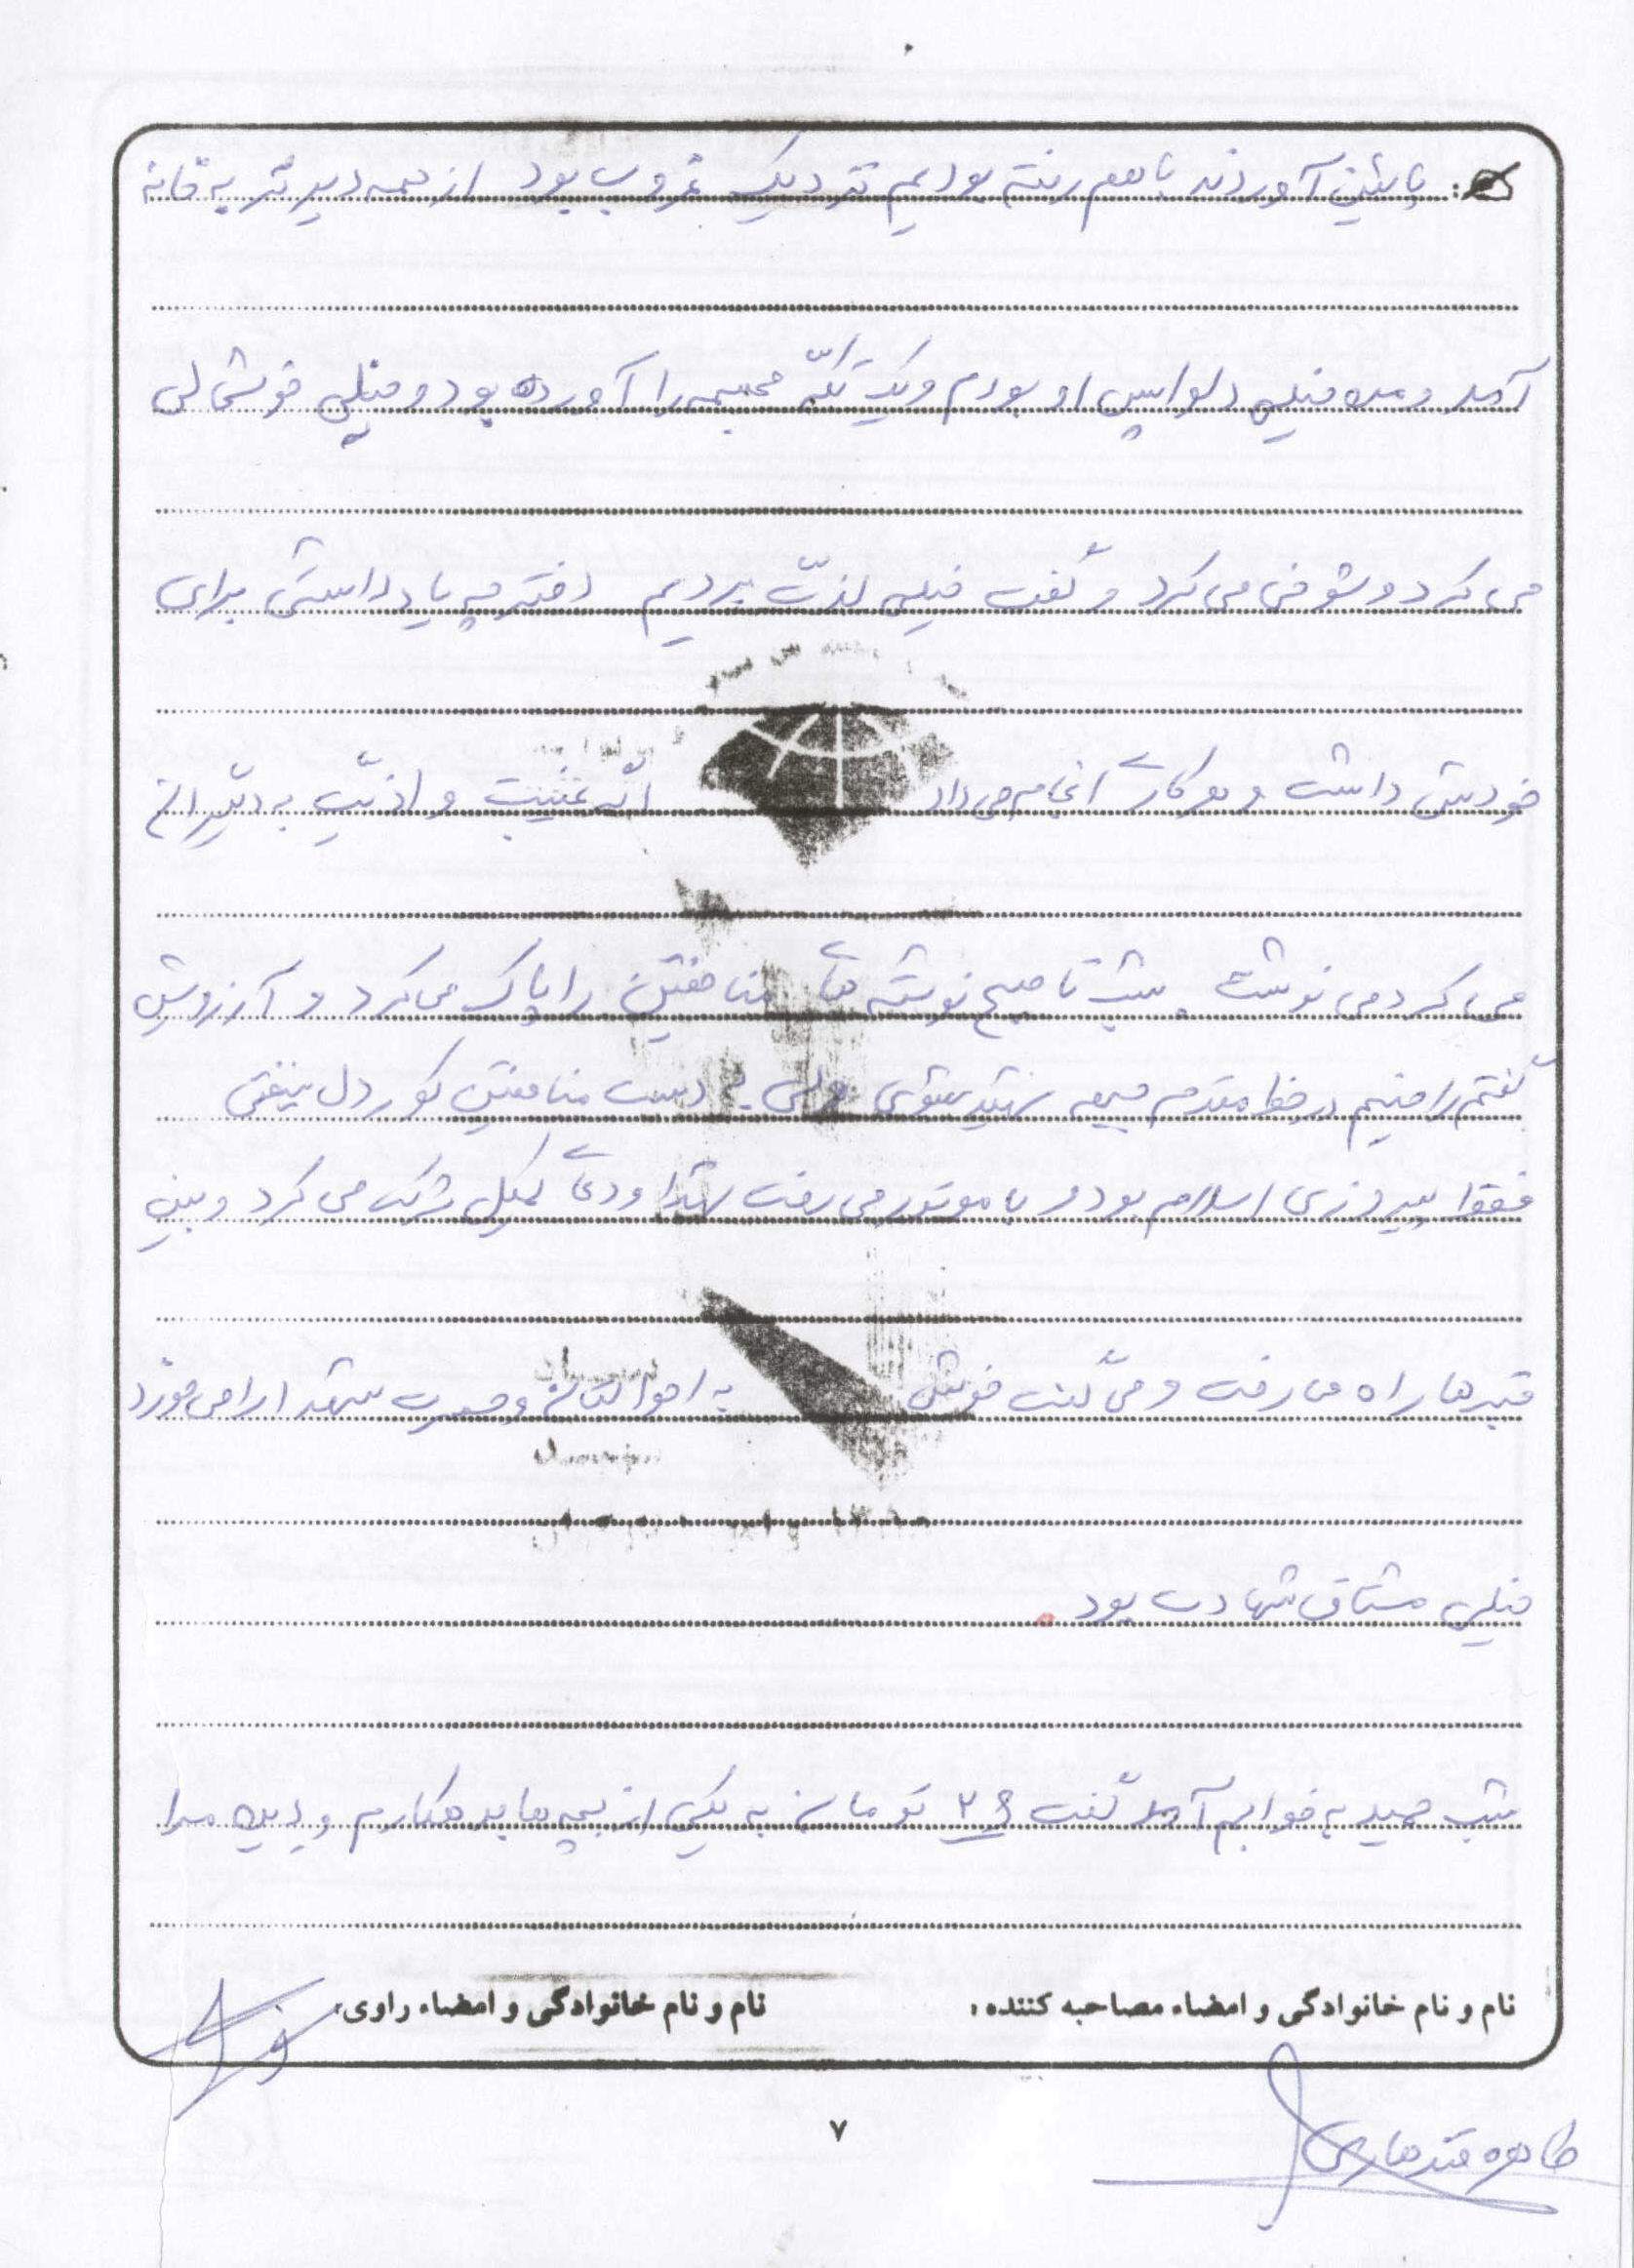 پائین آوردند با هم رفته بودیم نزدیک غروب بود از همه دیرتر به خانه
آمد و من خیلی دلواپس او بودم و یک تکّه مجسمه را آورده بود و خیلی خوشحالی
می کرد و شوخی می کرد و گفت خیلی لذّت بردیم دفترچه یادداشتی برای
خودش داشت و هر کاری انجام می داد اگه غیبت و اذیّت به دیگران
می کرد می نوشت شب تا صبح نوشته های منافقین را پاک می کرد و آرزویش
گفتم راضیم در خط مقدم جبهه شهید شوی ولی به دست منافقین کوردل نیفتی
فقط پیروزی اسلام بود و با موتور می رفت بهشت و دعای کمیل شرکت می کرد و بین
قبرها راه می رفت و می گفت خوش به احوالتان و حسرت شهدا را می خورد
خیلی مشتاق شهادت بود.
شب حمید به خوابم آمد گفت ۲۶ تومان به یکی از بچه ها بدهکارم و بدید مرا
نام و نام خانوادگی و امضاء مصاحبه کننده: نام و نام خانوادگی و امضاء راوی:
۷
طاهره قندهاری